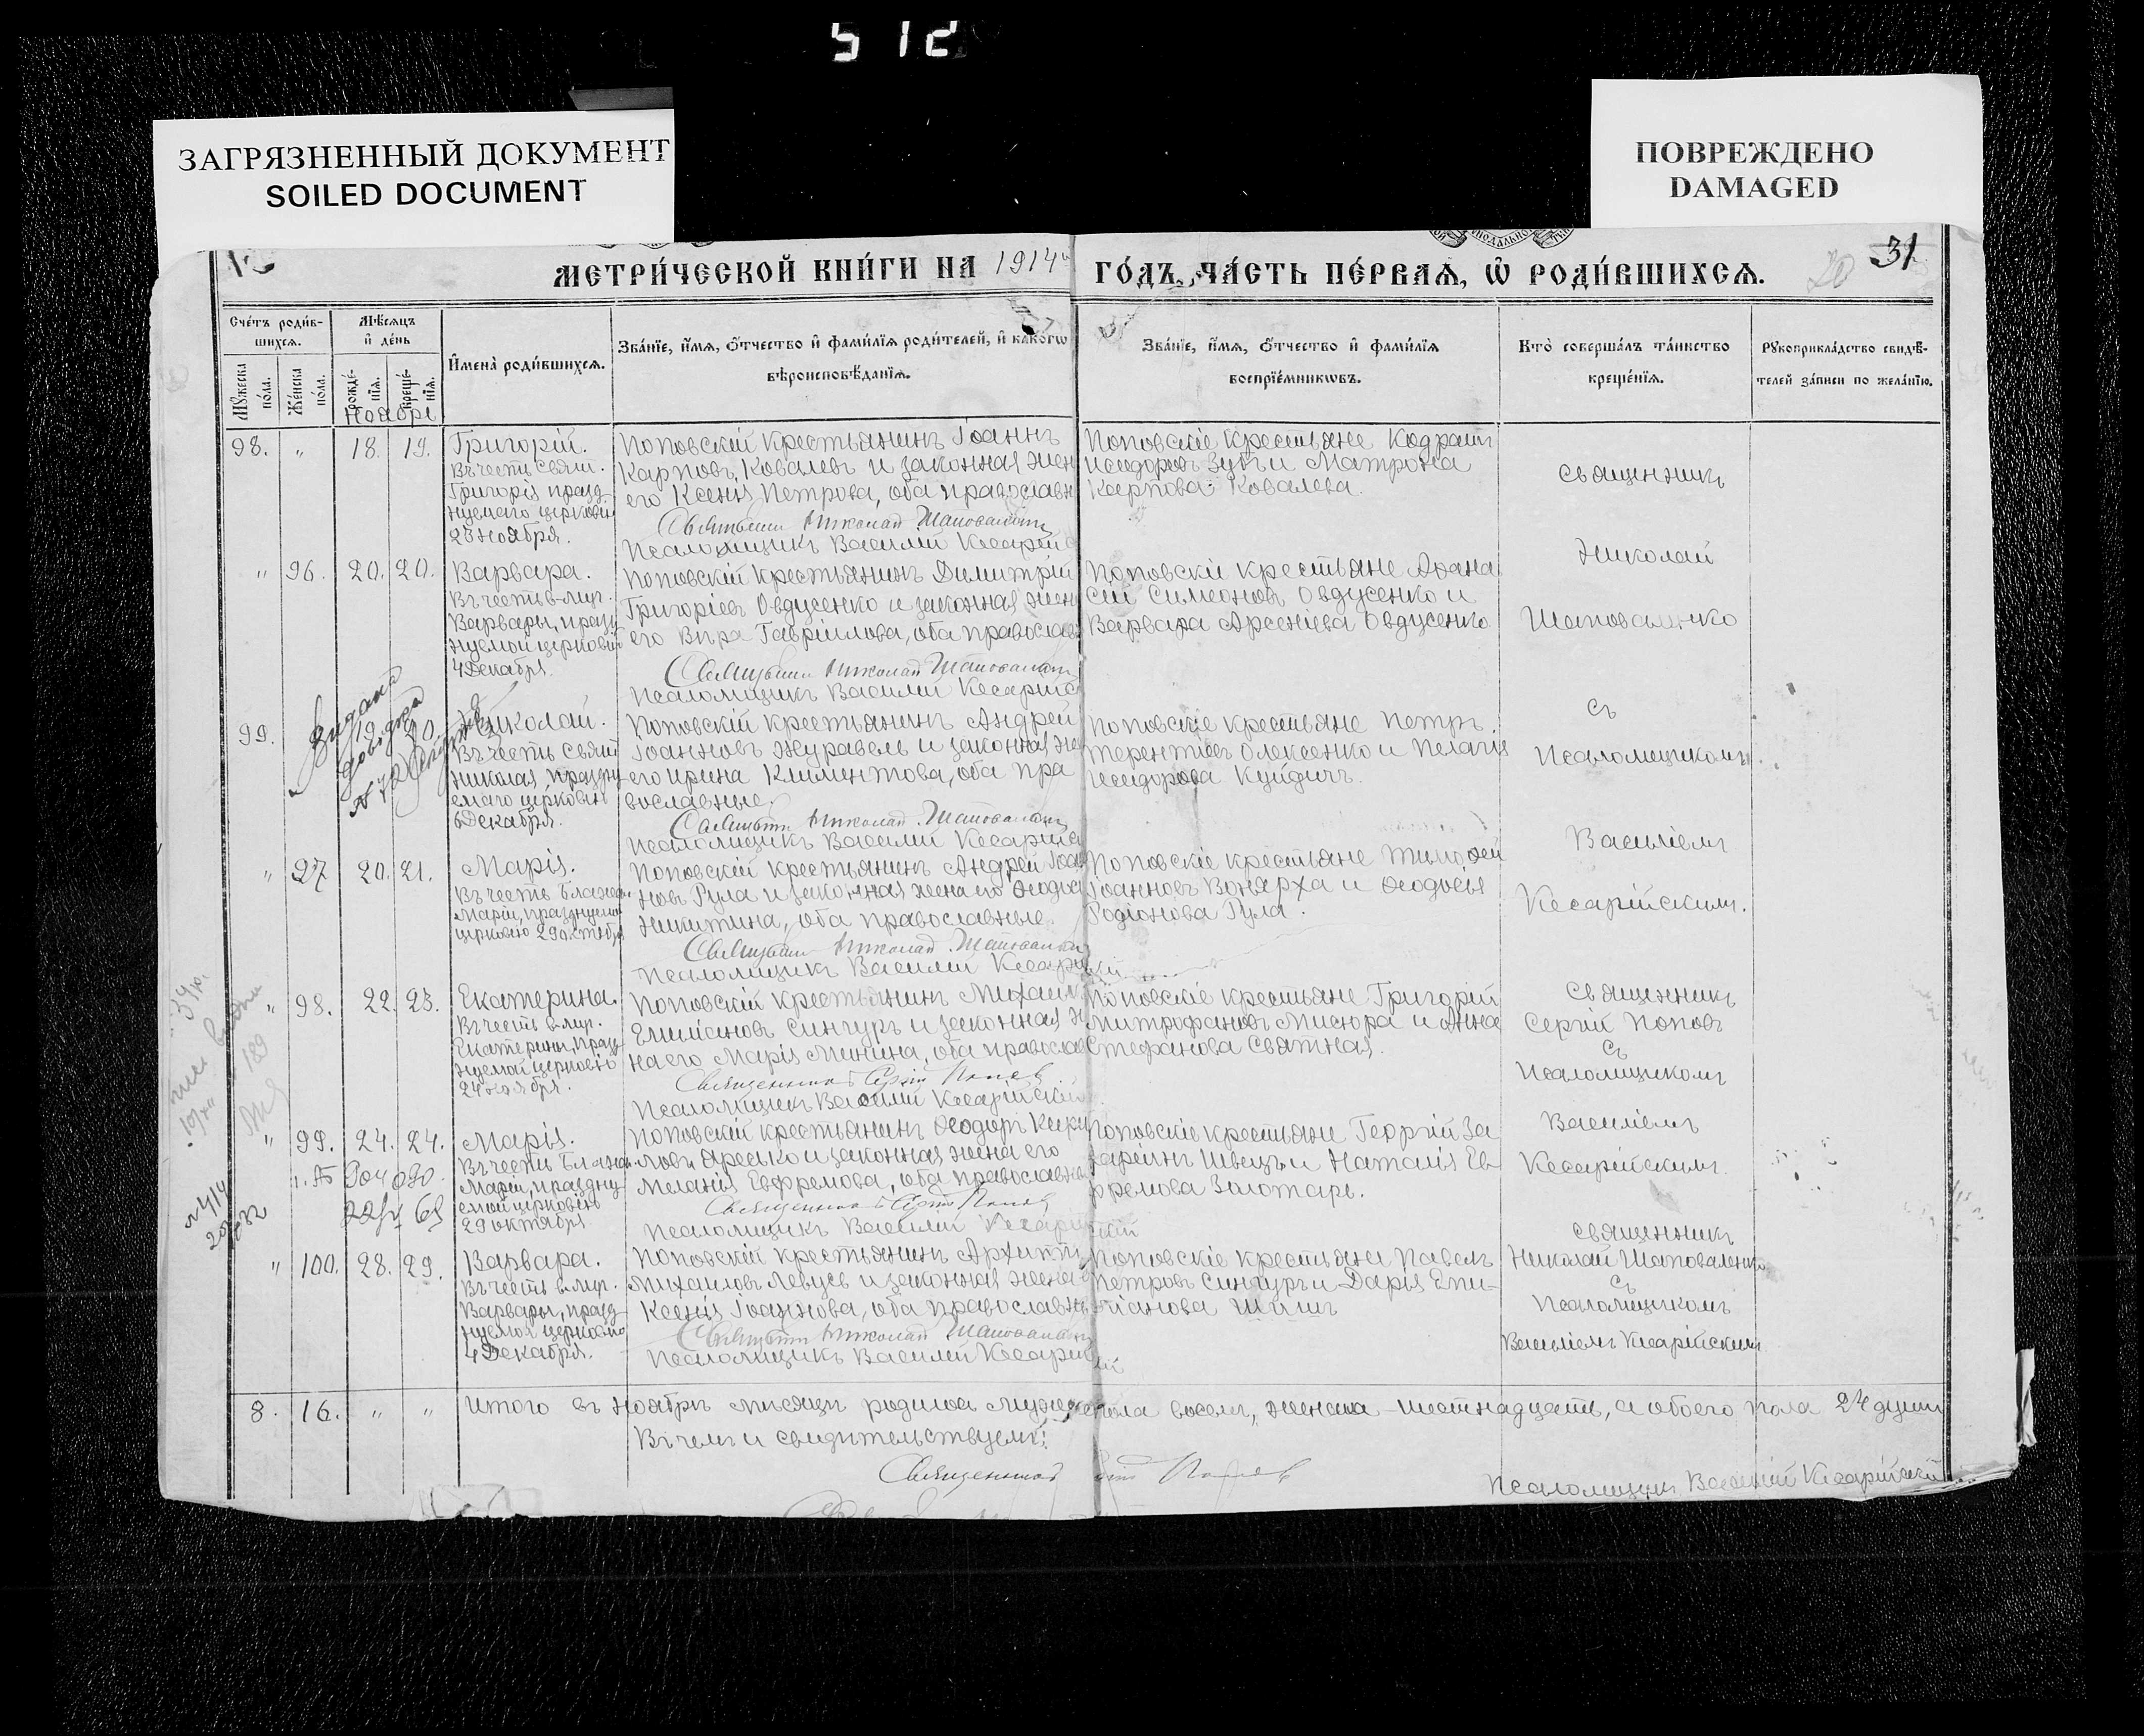 512
ЗАГРЯЗНЕННЫЙ ДОКУМЕНТ
SOILED DOCUMENT
ПОВРЕЖДЕНО
DAMAGED
МЕТРИ́ЧЕСКОЙ КНИ́ГИ НА 1914 ГО́ДЪ, ЧА́СТЬ ПЕ́РВАѦ, Ѽ РОДИ́ВШИХСѦ.
20 31
Сче́тъ роди́в-
шихсѧ.
Мѣ́сѧцъ
и҆ де́нь
Мꙋ́жеска
по́ла.
Же́нска
по́ла.
рожде́-
нїѧ.
креще́-
нїѧ.
И҆мена̀ роди́вшихсѧ.
Зва́нїе, и҆́мѧ, ѻ҆́тчество и҆ фами́лїѧ роди́телей, и҆ како́гѡ
вѣроисповѣ́данїѧ.
Зва́нїе, и҆́мѧ, ѻ҆́тчество и҆ фами́лїѧ
воспрїе́мникѡвъ.
Кто̀ соверша́лъ та́инство
креще́нїѧ.
Рꙋкоприкла́дство свидѣ́-
телей за́писи по жела́нїю.
Ноябрь
98. " 18. 19. Григорій.
Въ честь свят.
Григорія празд-
нуемаго церковью
23 ноября.
Поповскій крестьянинъ Іоаннъ
Карповъ Ковалевъ и законная жен
его Ксенія Петрова, оба православн
Священникъ Николай Шаповаленко
Псаломщикъ Василий Кесарій
Поповскіе крестьяне Кодратъ
Исидоровъ Зубъ и Матрона
Карпова Ковалева.
Священникъ
Николай
Шаповаленко
съ
Псаломщикомъ
Василіемъ
Кесарійскимъ.
" 96. 20. 20. Варвара.
Въ честь в-муч.
Варвары, празд
нуемой церковью
4 Декабря.
Поповскій крестьянинъ Димитрій
Григоріевъ Овдусенко и законная жен
его Вѣра Гавріилова, оба православ
Священникъ Николай Шаповаленко
Псаломщикъ Василий Кесарійс
Поповскіе крестьяне Афана
сій Симеоновъ Овдусенко и
Варвара Арсеніева Овдусенко
99. 19. 20. Николай.
Въ честь свят
Николая праздну
емаго церковью
6 Декабря.
Выдана
Поповскій крестьянинъ Андрей
Іоанновъ Журавель и законная же
его Ирина Климентова, оба пра
вославные.
Священникъ Николай Шаповаленко
Псаломщикъ Василий Кесарійс
Поповскіе крестьяне Петръ
Терентіевъ Олексенко и Пелагія
Исидорова Куйдичъ.
" 97 20. 21. Марія.
Въ честь блажен.
Маріи, празднуемой
церковью 29 октября
Поповскій крестьянинъ Андрей Іоан
новъ Гула и законная жена его Ѳеодосія
Никитина, оба православные.
Священникъ Николай Шаповаленко
Псаломщикъ Василий Кесарійскій
Поповскіе крестьяне Тимофей
Іоанновъ Вонярха и Ѳеодосія
Родіонова Гула.
" 98. 22. 23. Екатерина.
Въ честь в-муч.
Екатерины, празд
нуемой церковью
24 ноября.
Поповскій крестьянинъ Михаилъ
Емиліановъ Сингуръ и законная же
на его Марія Минина, оба православ
Священникъ Сергій Поповъ
Псаломщикъ Василий Кесарійскій
Поповскіе крестьяне Григорій
Митрофановъ Мисюра и Анна
Стефанова Святная.
Священникъ
Сергій Поповъ
съ
Псаломщикомъ
Василіемъ
Кесарійскимъ.
" 99. 24. 24. Марія.
Въ честь блажен.
Маріи, праздну
емой церковью
29 октября
Поповскій крестьянинъ Ѳеодоръ Кири
ловъ Яресько и законная жена его
Меланія Евфремова, оба православн
Священникъ Сергій Поповъ
Псаломщикъ Василий Кесарійскій
Поповскіе крестьяне Георгій За
харіинъ Швецъ и Наталія Ев
фремова Золотарь.
" 100. 28. 29. Варвара.
Въ честь в-муч.
Варвары, празд
нуемой церковью
4 Декабря.
Поповскій крестьянинъ Архиппъ
Михаиловъ Левусь и законная жена
Ксенія Іоаннова, оба православн
Священникъ Николай Шаповаленко
Псаломщикъ Василий Кесарійскій
Поповскіе крестьяне Павелъ
Петровъ Сингуръ и Дарія Епи-
фанова Шишъ
Священникъ
Николай Шаповаленко
съ
Псаломщикомъ
Василіемъ Кесарійскимъ
8. 16. " " Итого въ Ноябрѣ мѣсяцѣ родилось мужеска пола восемь, женска – шестнадцать, а обоего пола 24 души
Въ чемъ и свидѣтельствуемъ:
Священникъ Сергій Поповъ
Псаломщикъ Василій Кесарійскій